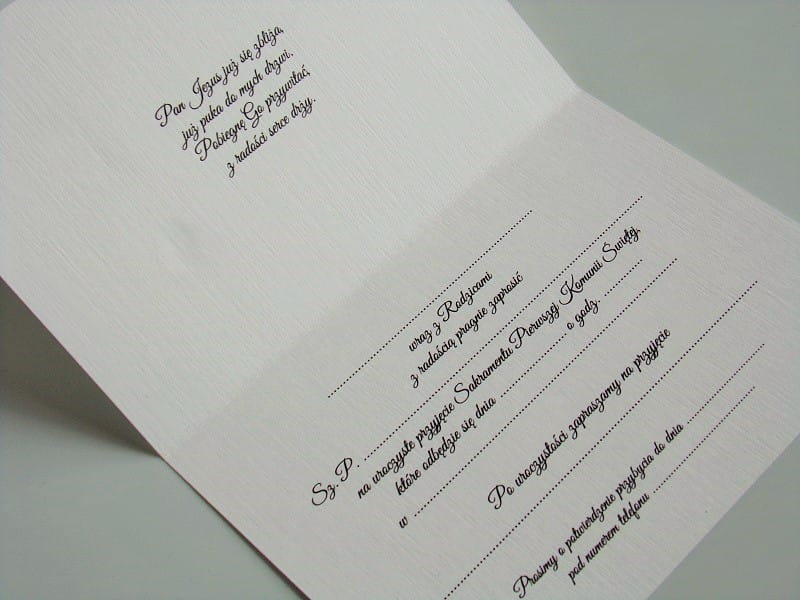 Pan Jezus już się zbliża,
już puka do mych drzwi.
Pobiegnę Go przywitać,
z radości serce drży.
wraz z Rodzicami
z radością pragnie zaprosić
Sz. P.
na uroczyste przyjęcie Sakramentu Pierwszej Komunii Świętej,
które odbędzie się dnia o godz.
w
Po uroczystości zapraszamy na przyjęcie
Prosimy o potwierdzenie przybycia do dnia
pod numerem telefonu